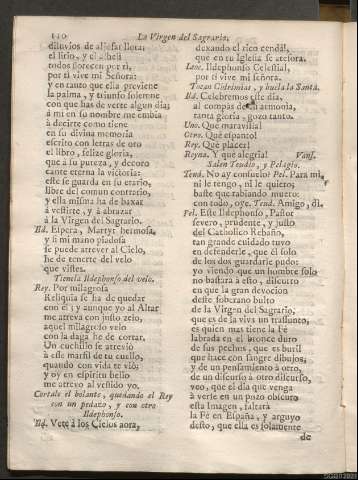 120 La Virgen del Sagrario,
diluvios de aljofar llora:
el lirio, y el alheli
todos florecen por ti,
por ti vive mi Señora:
y en tanto que ella previene
la palma, y triunfo solemne
con que has de verte algun dia;
à mi en su nombre me embia
à decirte como tiene
en su divina memoria
escrito con letras de oro
el libro, felize gloria,
que à su pureza, y decoro
cante eterna la victoria:
este se guarda en su erario,
libre del comun contrario,
y ella misma ha de baxar
à vestirte, y à abrazar
à la Virgen del Sagrario.
Ild. Espera, Martyr hermosa,
y si mi mano piadosa
se puede atrever al Cielo,
he de tenerte del velo
que vistes.
Tienela Ildephonso del velo.
Rey. Por milagrosa
Reliquia se ha de quedar
con èl; y aunque yo al Altar
me atreva con justo zelo,
aquel milagroso velo
con la daga he de cortar.
Un cuchillo se atreviò
à este marfil de tu cuello,
quando con vida te viò;
y oy en espiritu bello
me atrevo al vestido yo.
Cortale el bolante, quedando el Rey
con un pedazo, y con otro
Ildephonso.
Ild. Vete à los Cielos aora,
dexando el rico cendàl,
que en tu Iglesia se atesora.
Leoc. Ildephonso Celestial,
por ti vive mi señora.
Tocan Chirimias, y buela la Santa.
Ild. Celebremos este dia,
al compas de su armonia,
tanta gloria, gozo tanto.
Uno. Què maravilla!
Otro. Què espanto!
Rey. Què placer!
Reyna. Y què alegria! Vans.
Salen Teudio, y Pelagio.
Teud. No ay consuelo? Pel. Para mi,
ni le tengo, ni le quiero;
baste que rabiando muero:
con todo, oye. Teud. Amigo, di.
Pel. Este Ildephonso, Pastor
severo, prudente, y justo
del Catholico Rebaño,
tan grande cuidado tuvo
en defenderle, que èl solo
de los dos guardarle pudo;
yo viendo que un hombre solo
no bastarà à esto, discurro
en que la gran devocion
deste soberano bulto
de la Virgen del Sagrario,
que es de la viva un trasunto,
es quien mas tiene la Fè
labrada en el bronce duro
de sus pechos, que es buril
que hace con sangre dibujos;
y de un pensamiento à otro,
de un discurso à otro discurso,
veo, que el dia que venga
à verse en un pozo obscuro
esta Imagen, faltarà
la Fè en España, y arguyo
desto, que ella es solamente
de